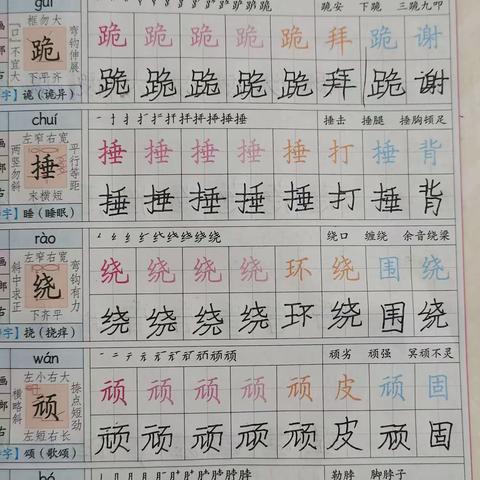 guì
跪安 下跪 三跪九叩
框勿大
『口』不宜大 跪 弯钩伸展
跪 跪 跪 跪 跪 拜 跪 谢
下平齐
字】诡（诡异）
跪 跪 跪 跪 跪 拜 跪 谢
chuí
捶击 捶腿 捶胸顿足
左窄右宽
两竖勿斜 捶 平行等距
捶 捶 捶 捶 捶 打 捶 背
末横短
字】睡（睡眠）
捶 捶 捶 捶 捶 打 捶 背
rào
绕口 缠绕 余音绕梁
左窄右宽
斜中求正 绕 弯钩有力
绕 绕 绕 绕 环 绕 围 绕
下齐平
字】挠（挠痒）
绕 绕 绕 绕 环 绕 围 绕
wán
顽劣 顽强 冥顽不灵
左小右大
横略斜 顽 捺点短劲
顽 顽 顽 顽 顽 皮 顽 固
左短右长
字】颂（歌颂）
顽 顽 顽 顽 顽 皮 顽 固
bó
勒脖 脚脖子